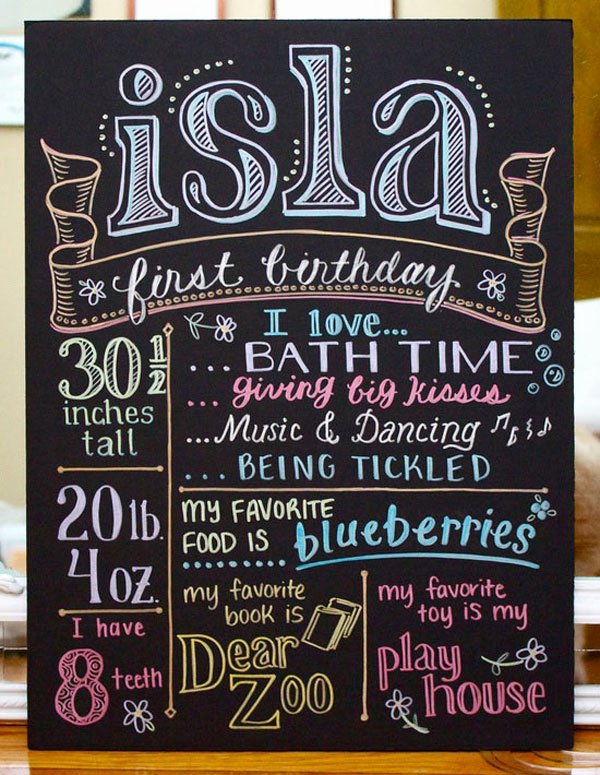 isla
first birthday
30 1/2
inches
tall
20 lb.
4 oz.
I have
8 teeth
I love...
...BATH TIME
...giving big kisses
...Music & Dancing
...BEING TICKLED
MY FAVORITE
FOOD IS blueberries
my favorite
book is
Dear
Zoo
my favorite
toy is my
play
house